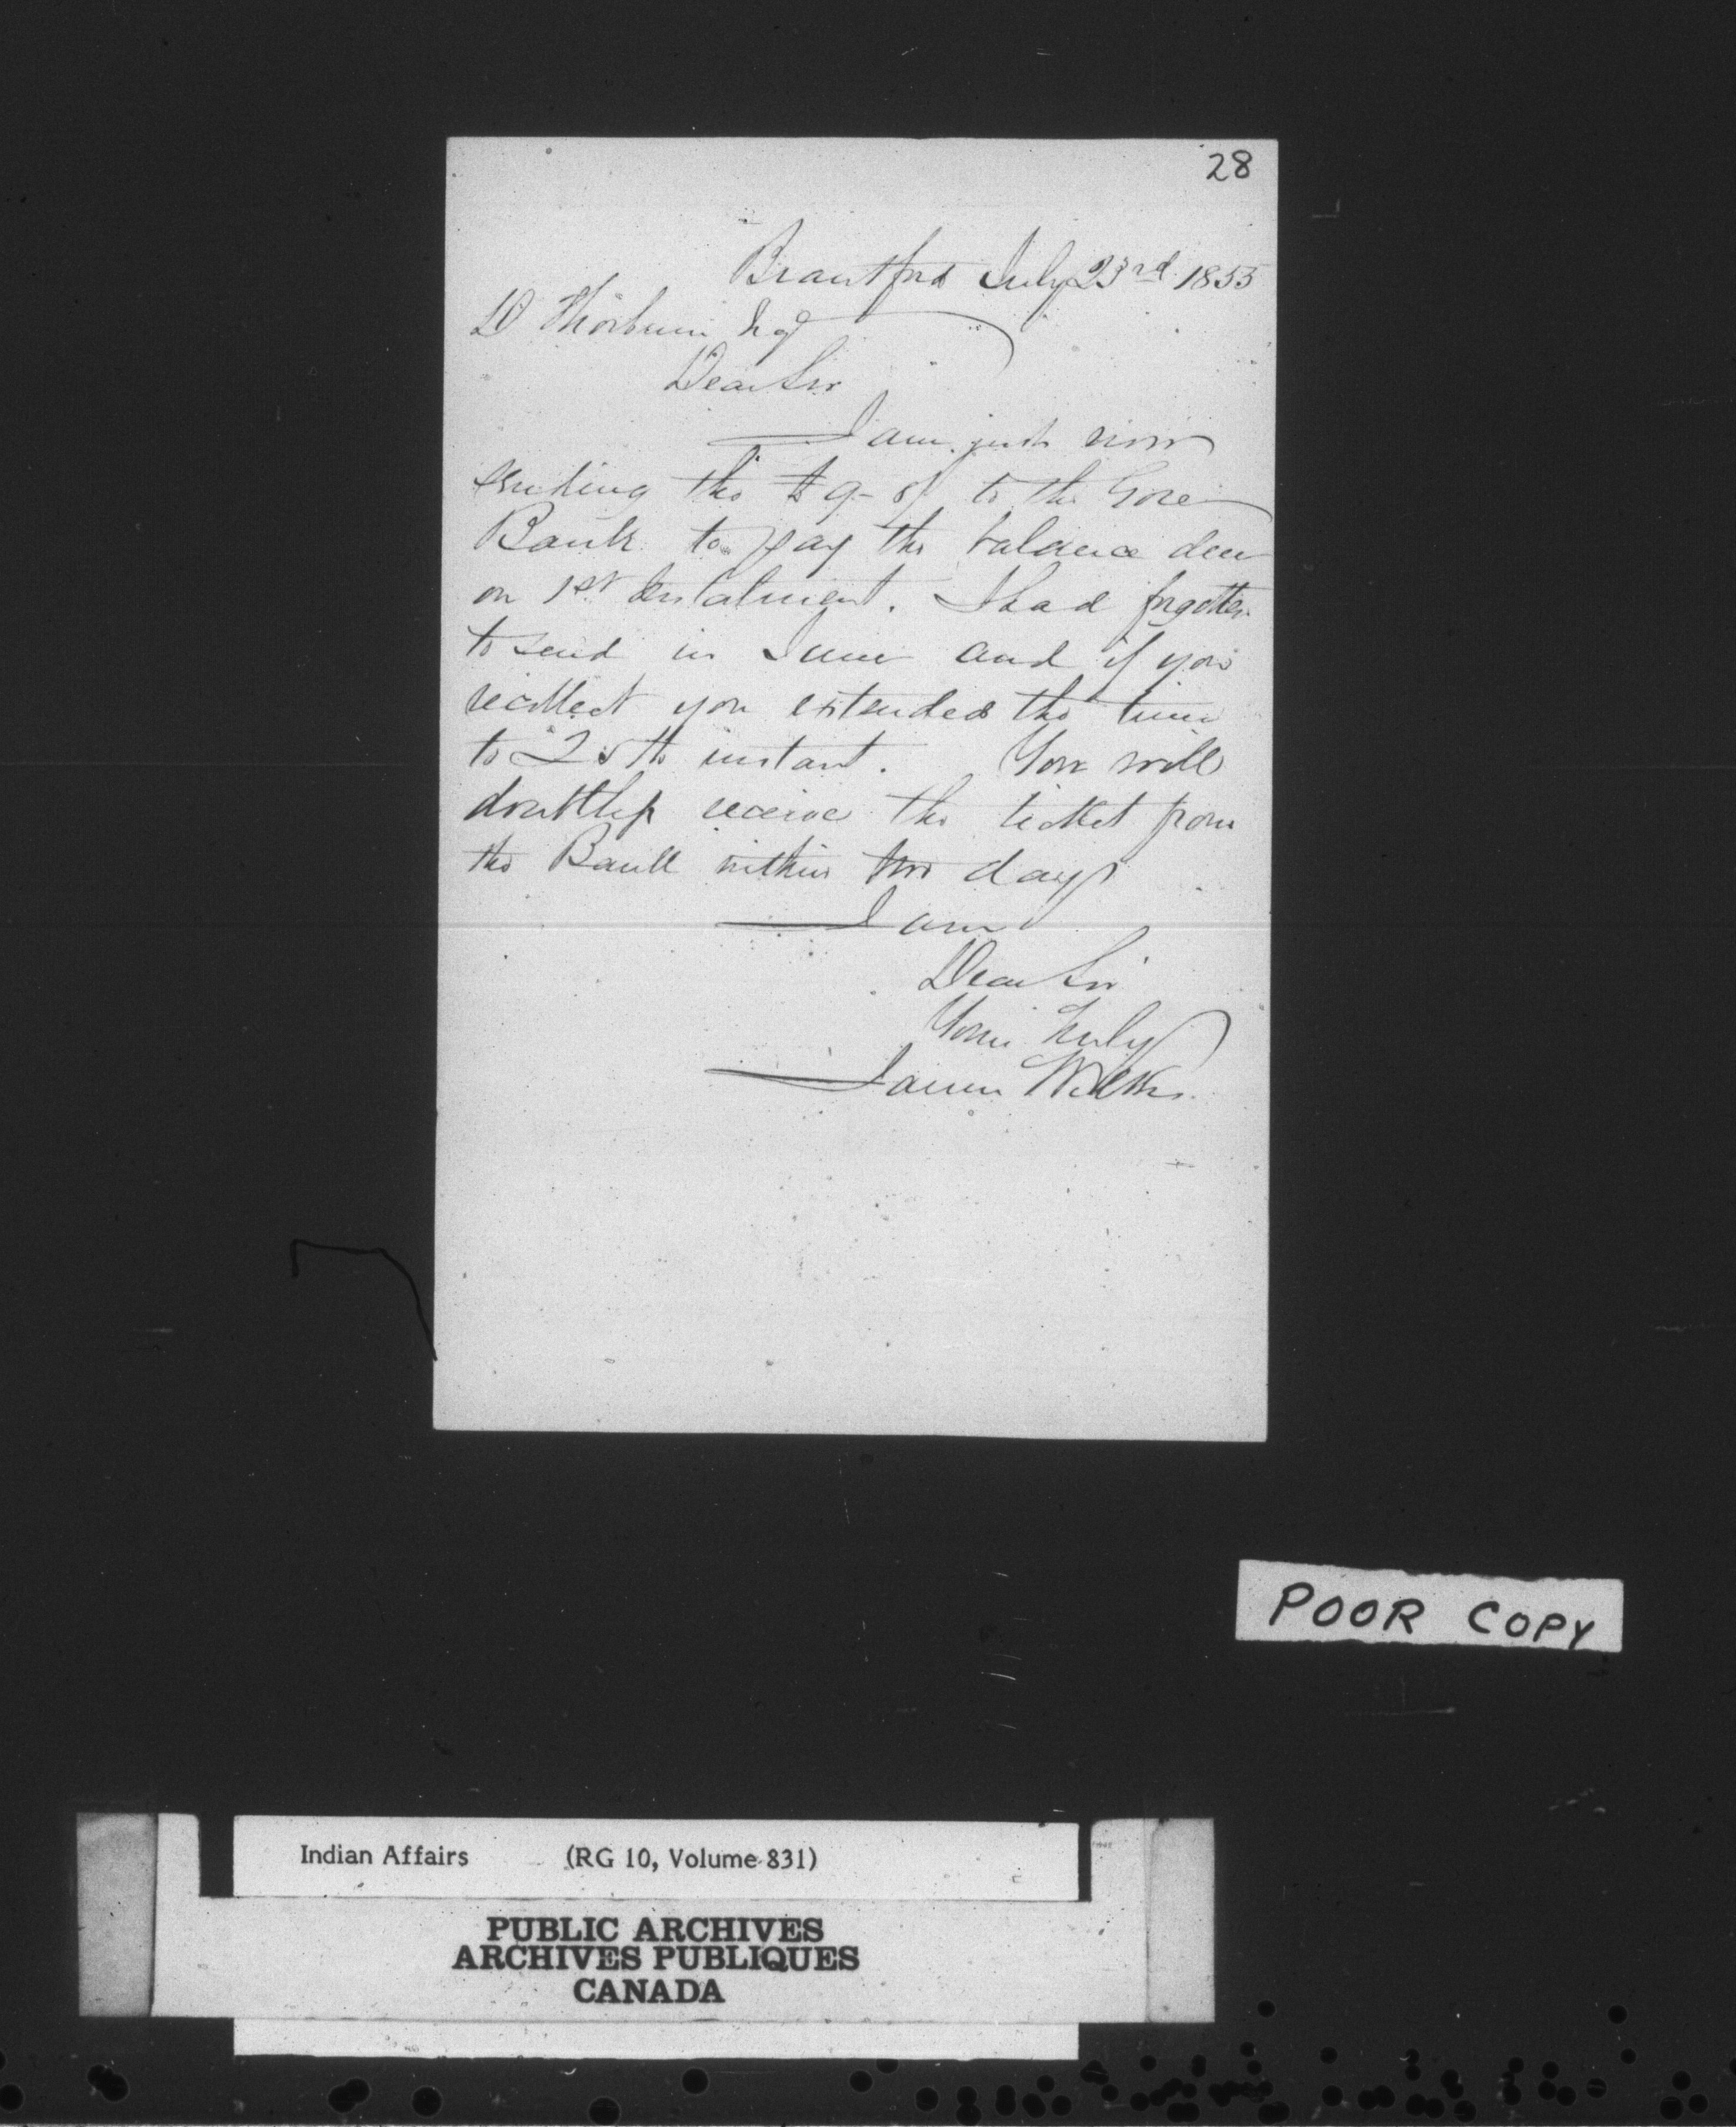 28
Brantford July 23rd 1855
D Thorburn Esq
Dear Sir
I am just now
sending the to the Gore
Bank to pay the balance due
on 1st Instalment. I had forgotten
to send in June and if you
recollect you extended the time
to 25th instant. You will
doubtless receive the ticket from
the Bank within two days
I am
Dear Sir
Yours truly
James Wilkes.
POOR COPY
Indian Affairs (RG 10, Volume 831)
PUBLIC ARCHIVES
ARCHIVES PUBLIQUES
CANADA